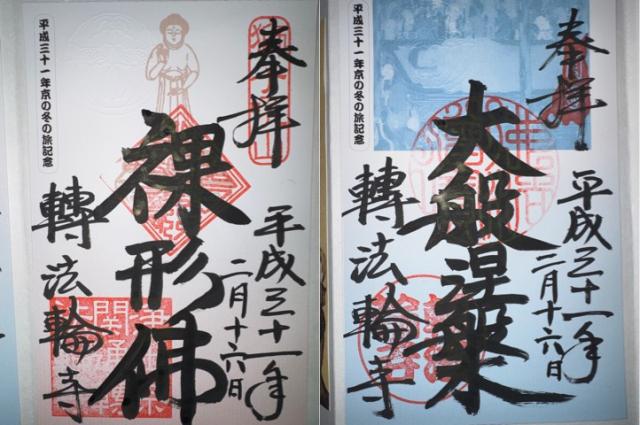 奉拝
平成三十一年
二月十六日
裸形佛
轉法輪寺
平成三十一年京の冬の旅記念
奉拝
平成三十一年
二月十六日
大般涅槃
轉法輪寺
平成三十一年京の冬の旅記念